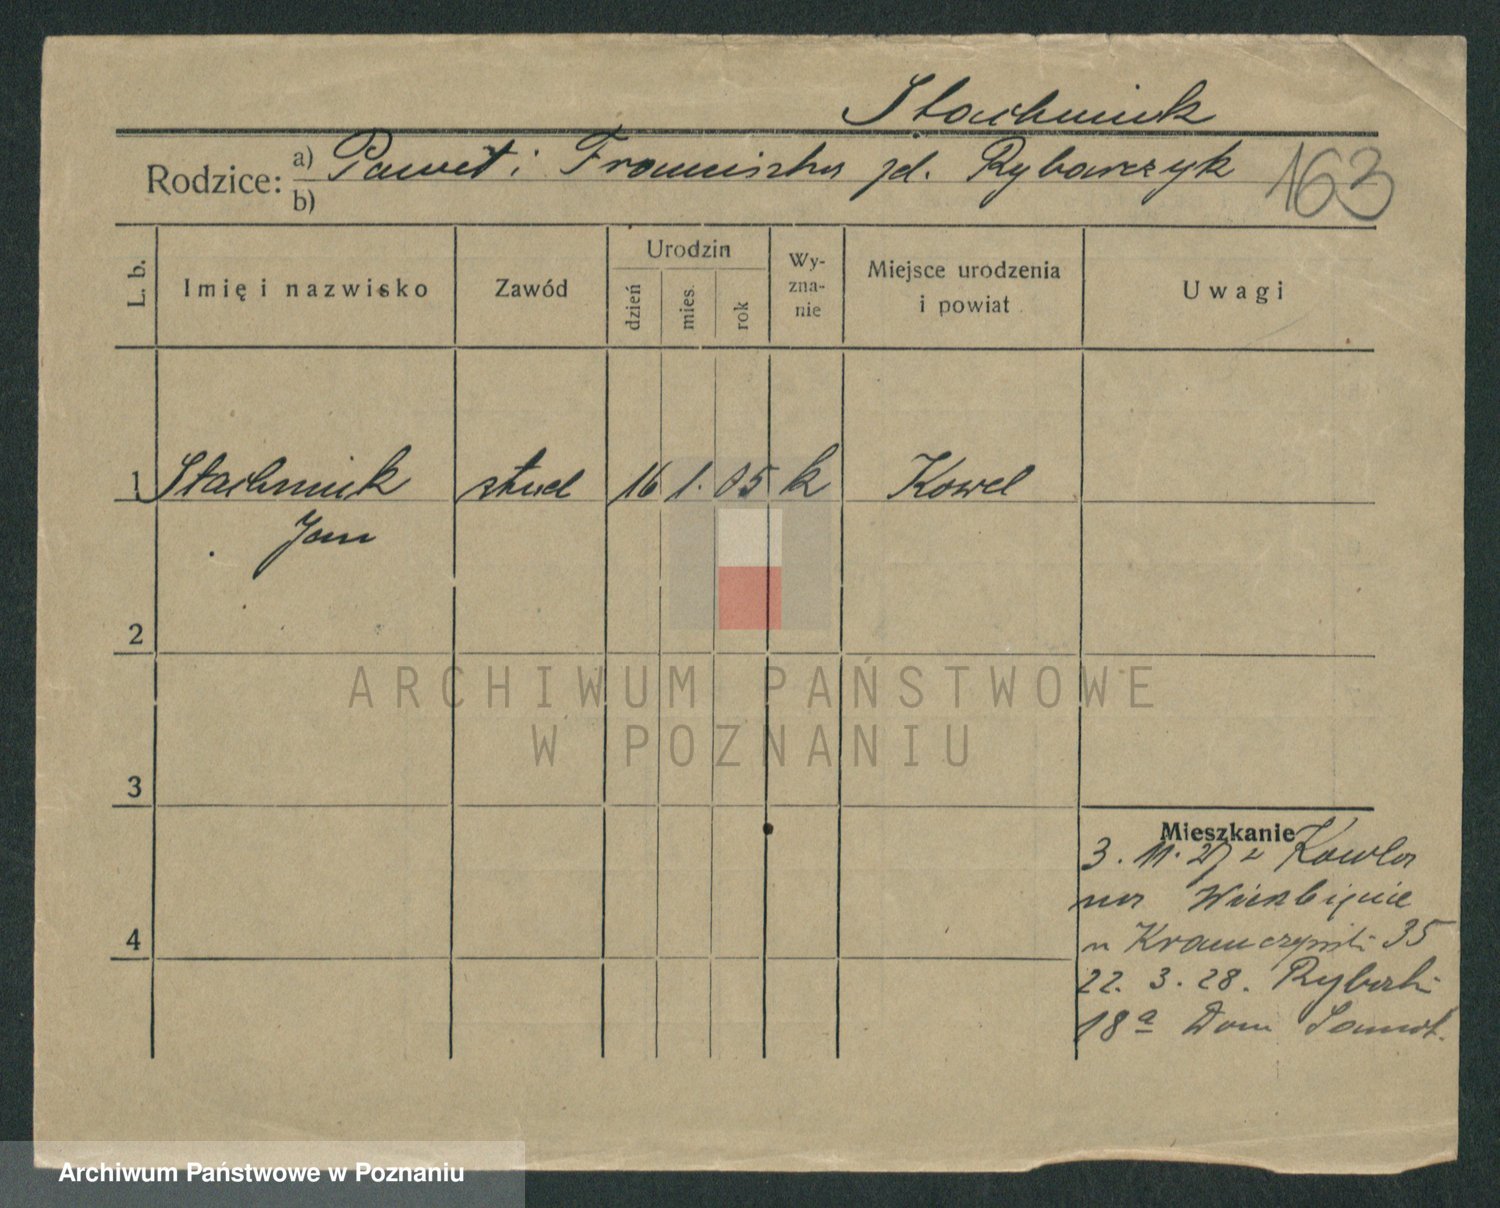 Stachmiuk
Rodzice: a) Paweł i Franciszka jd. Rybarczyk
b)
163
L. b.
Imię i nazwisko
Zawód
Urodzin
dzień
mies.
rok
Wy-
zna-
nie
Miejsce urodzenia
i powiat
Uwagi
1 Stachmiuk stud 16 1. 05 k Kowel
Jan
2
3
4
Mieszkanie
3. 11. 27 z Kowla
na Wierzbięcie
35
22. 3. 28. Rybaki
18a Dom
ARCHIWUM PAŃSTWOWE
W POZNANIU
Archiwum Państwowe w Poznaniu